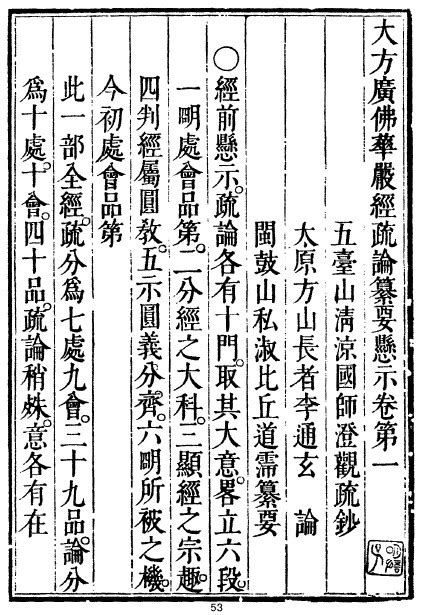 大方廣佛華嚴經疏論纂要懸示卷第一
五臺山淸涼國師澄觀疏鈔
太原方山長者李通玄　論
閩鼓山私淑比丘道霈纂要
○經前懸示。疏論各有十門。取其大意。畧立六段。
一明處會品第。二分經之大科。三顯經之宗趣。
四判經屬圓敎。五示圓義分齊。六明所被之機。
今初處會品第
此一部全經。疏分爲七處九會。三十九品。論分
爲十處。十會。四十品。疏論稍殊。意各有在
53